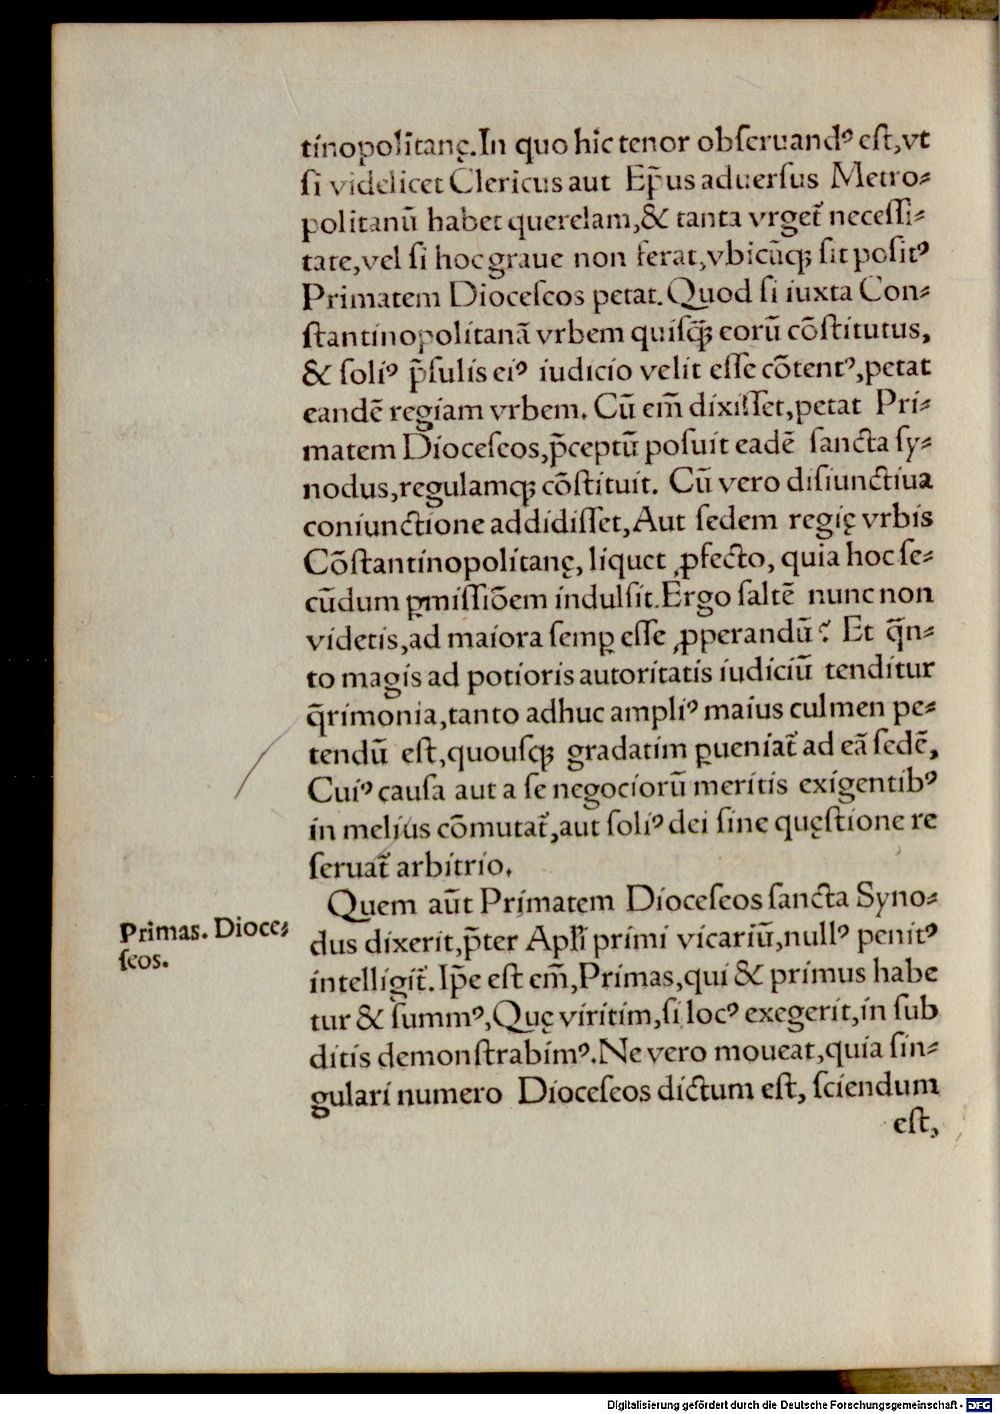 tinopolitanę. In quo hic tenor obſeruandꝰ eſt, vt
ſi videlicet Clericus aut Ep̃us aduerſus Metro⸗
politanũ habet querelam, & tanta vrget᷑ neceſſi⸗
tate, vel ſi hoc graue non ferat, vbicũqꝫ ſit poſitꝰ
Primatem Dioceſeos petat. Quod ſi iuxta Con⸗
ſtantinopolitanã vrbem quiſq̃ꝫ eorũ cõſtitutus,
& ſoliꝰ p̃ſulis eiꝰ iudicio velit eſſe cõtentꝰ, petat
eandẽ regiam vrbem. Cũ em̃ dixiſſet, petat Pri⸗
matem Dioceſeos, p̃ceptũ poſuit eadẽ ſancta ſy⸗
nodus, regulamqꝫ cõſtituit. Cũ vero diſiunctiua
coniunctione addidiſſet, Aut ſedem regię vrbis
Cõſtantinopolitanę, liquet ꝓfecto, quia hoc ſe⸗
cũdum ꝑmiſſiõem indulſit. Ergo ſaltẽ nunc non
videtis, ad maiora ſemꝑ eſſe ꝓperandũ? Et q̃n⸗
to magis ad potioris autoritatis iudiciũ tenditur
q̃rimonia, tanto adhuc ampliꝰ maius culmen pe⸗
tendũ eſt, quouſqꝫ gradatim ꝑueniat᷑ ad eã ſedẽ,
Cuiꝰ cauſa aut a ſe negociorũ meritis exigentibꝰ
in melius cõmutat᷑, aut ſoliꝰ dei ſine quęſtione re
ſeruat᷑ arbitrio.
Quem aũt Primatem Dioceſeos ſancta Syno⸗
Primas. Dioce⸗
ſeos.
dus dixerit, p̃ter Apłi primi vicariũ, nullꝰ penitꝰ
intelligit᷑. Ip̃e eſt em̃, Primas, qui & primus habe
tur & ſummꝰ, Quę viritim, ſi locꝰ exegerit, in ſub
ditis demonſtrabimꝰ. Ne vero moueat, quia ſin⸗
gulari numero Dioceſeos dictum eſt, ſciendum
eſt,
Digitalisierung gefördert durch die Deutsche Forschungsgemeinschaft - DFG